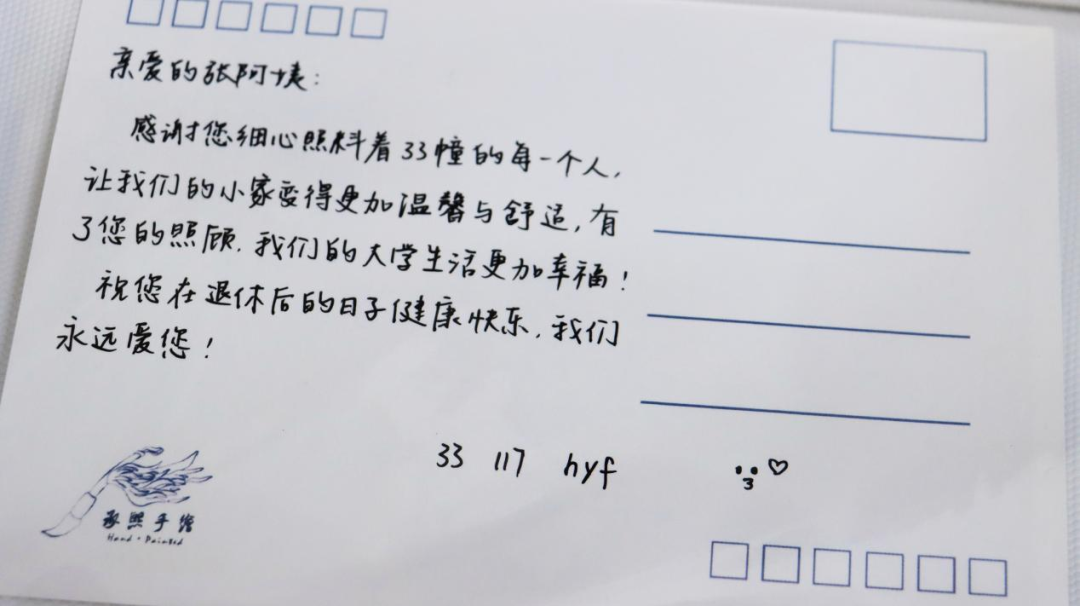 亲爱的张阿姨：
感谢您细心照料着33幢的每一个人，
让我们的小家变得更加温馨与舒适，有
了您的照顾，我们的大学生活更加幸福！
祝您在退休后的日子健康快乐，我们
永远爱您！
33 117 hyf
承熙手绘
Hand · Painted